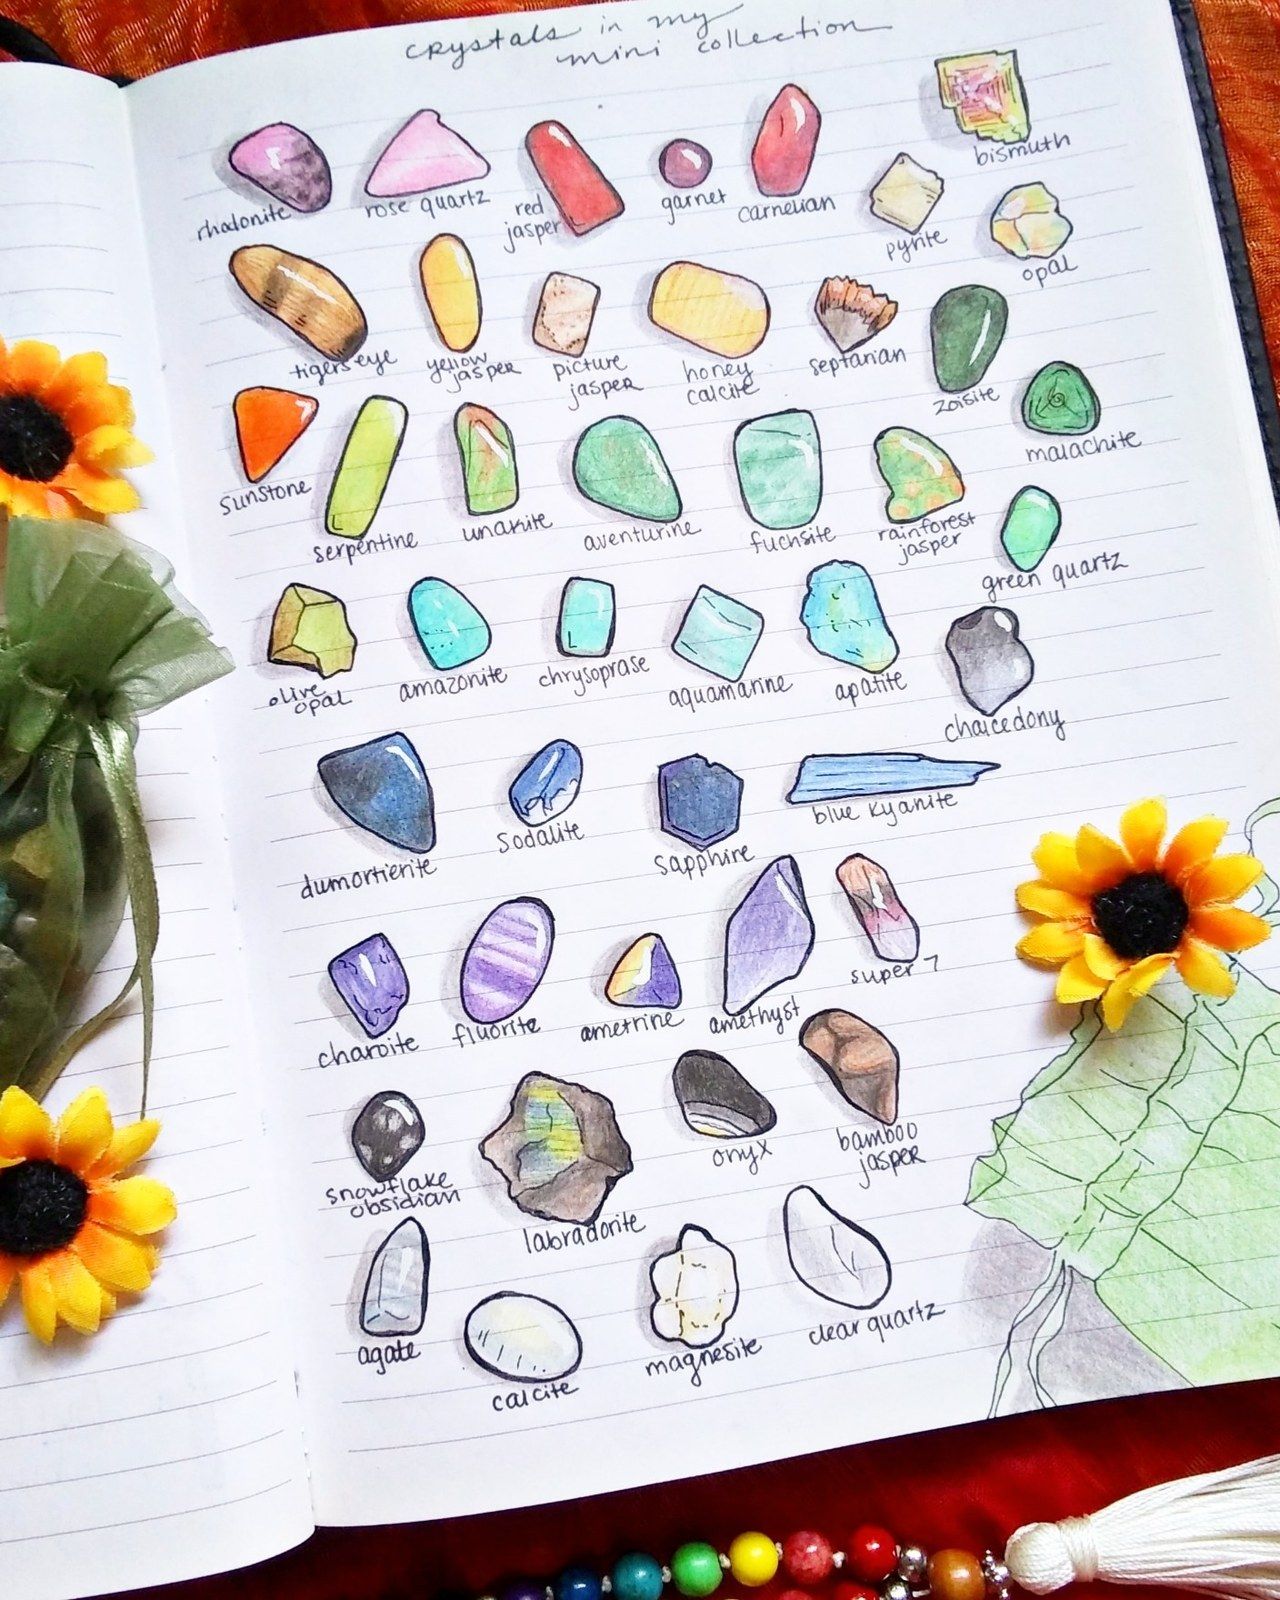 crystals in my
mini collection
bismuth
rhodonite
rose quartz
red
jasper
garnet
carnelian
pyrite
opal
tigers eye
yellow
jasper
picture
jasper
honey
calcite
septarian
zoisite
malachite
sunstone
serpentine
unakite
aventurine
fuchsite
rainforest
jasper
green quartz
olive
opal
amazonite
chrysoprase
aquamarine
apatite
chalcedony
dumortierite
sodalite
sapphire
blue kyanite
charoite
fluorite
ametrine
amethyst
super 7
snowflake
obsidian
labradorite
onyx
bamboo
jasper
agate
calcite
magnesite
clear quartz